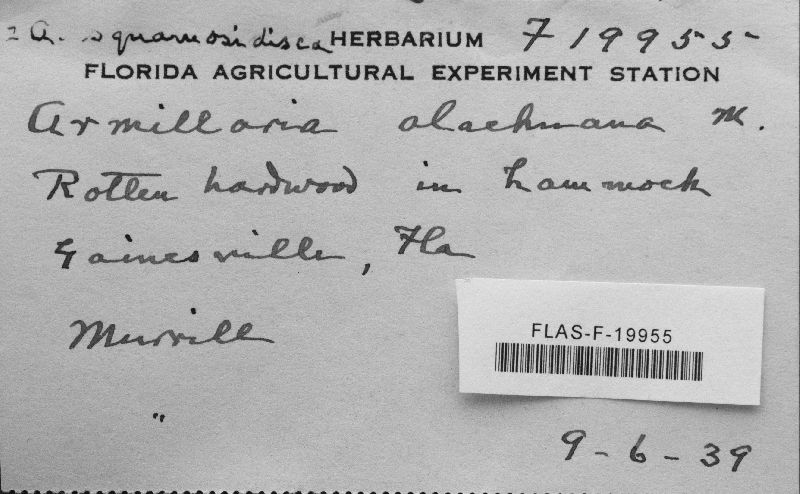 = A. squamosidisca HERBARIUM F 19955-
FLORIDA AGRICULTURAL EXPERIMENT STATION
Armillaria alachuana M.
Rotten hardwood in hammock
Gainesville, Fla
Murrill
"
FLAS-F-19955
9-6-39